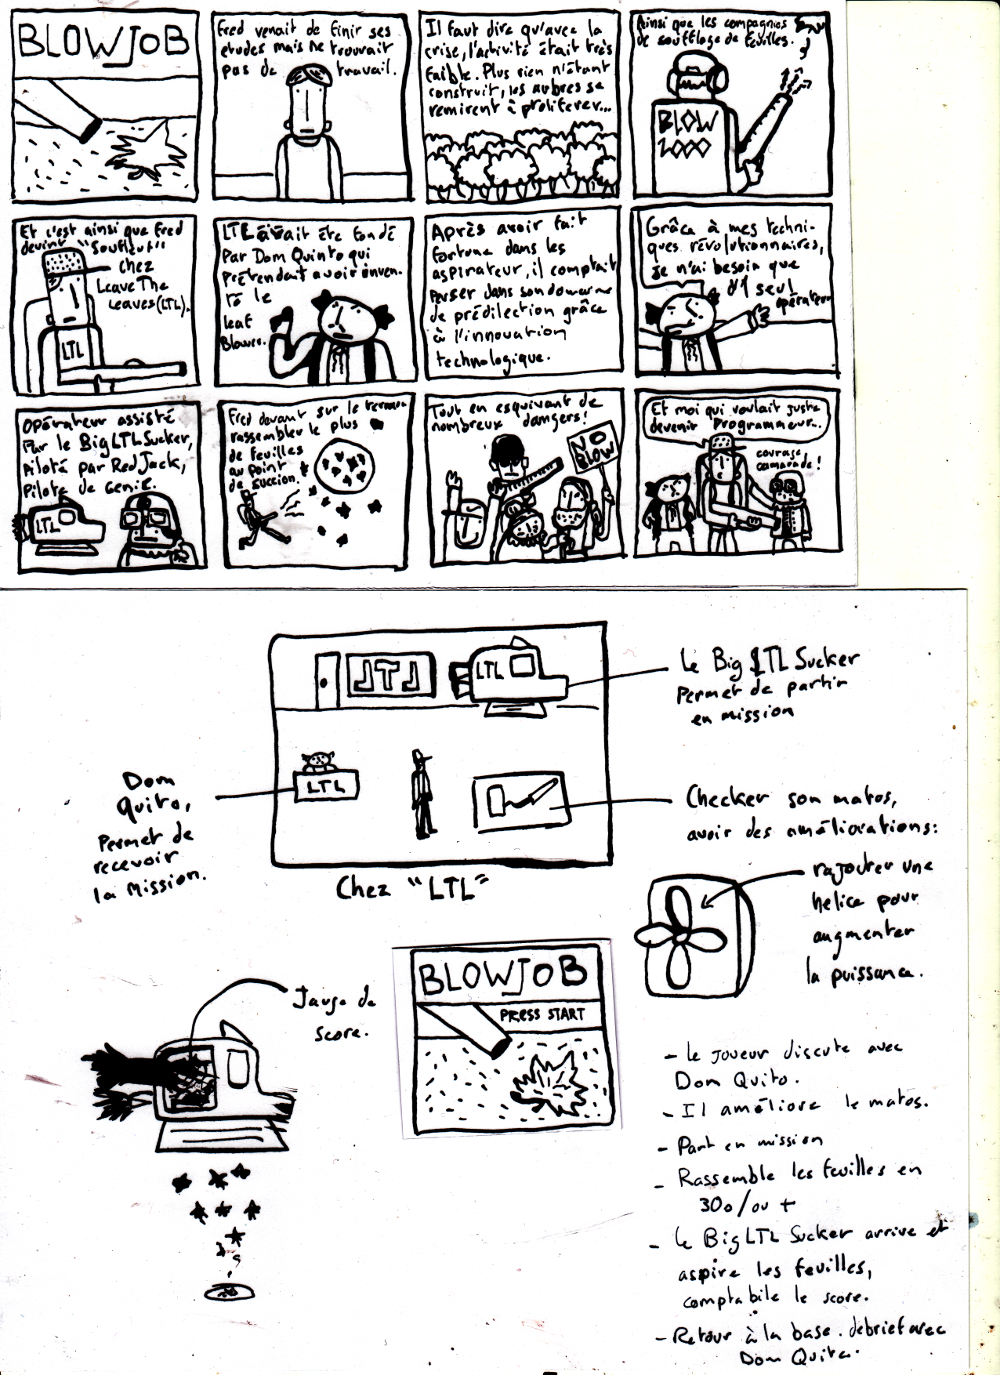 BLOWJOB
Fred venait de finir ses
etudes mais ne trouvait
pas de travail.
Il faut dire qu'avec la
crise, l'activité était très
faible. Plus rien n'étant
construit, les arbres se
remirent à proliferer...
Ainsi que les compagnies
de soufflage de feuilles.
BLOW
2000
Et c'est ainsi que Fred
devint "Souffleur"
chez
Leave The
Leaves (LTL).
LTL
LTL avait été fondé
par Dom Quinto qui
prétendait avoir inven-
té le
leaf
Blower.
Après avoir fait
fortune dans les
aspirateur, il comptait
percer dans son domaine
de prédilection grâce
à l'innovation
technologique.
Grâce à mes techni-
ques révolutionnaires,
je n'ai besoin que
d'1 seul
opérateur
Opérateur assisté
Par le Big LTL Sucker,
piloté par Red Jack,
Pilote de Genie.
LTL
Fred devant sur le terrain
rassembler le plus
de feuilles
au point
de succion.
Tout en esquivant de
nombreux dangers!
NO
BLOW
Et moi qui voulait juste
devenir programmeur...
courage
camarade!
LTL
Le Big LTL Sucker
Permet de partir
en mission
Dom
Quito,
Permet de
recevoir
la Mission.
LTL
Checker son matos,
avoir des améliorations:
Chez "LTL"
rajouter une
helice pour
augmenter
la puissance.
Jauge de
score.
BLOWJOB
PRESS START
- Le joueur discute avec
Dom Quito.
- Il améliore le matos.
- Part en mission
- Rassemble les feuilles en
30s/ou +
- Le Big LTL Sucker arrive et
aspire les feuilles,
comptabile le score.
- Retour à la base. debrief avec
Dom Quito.